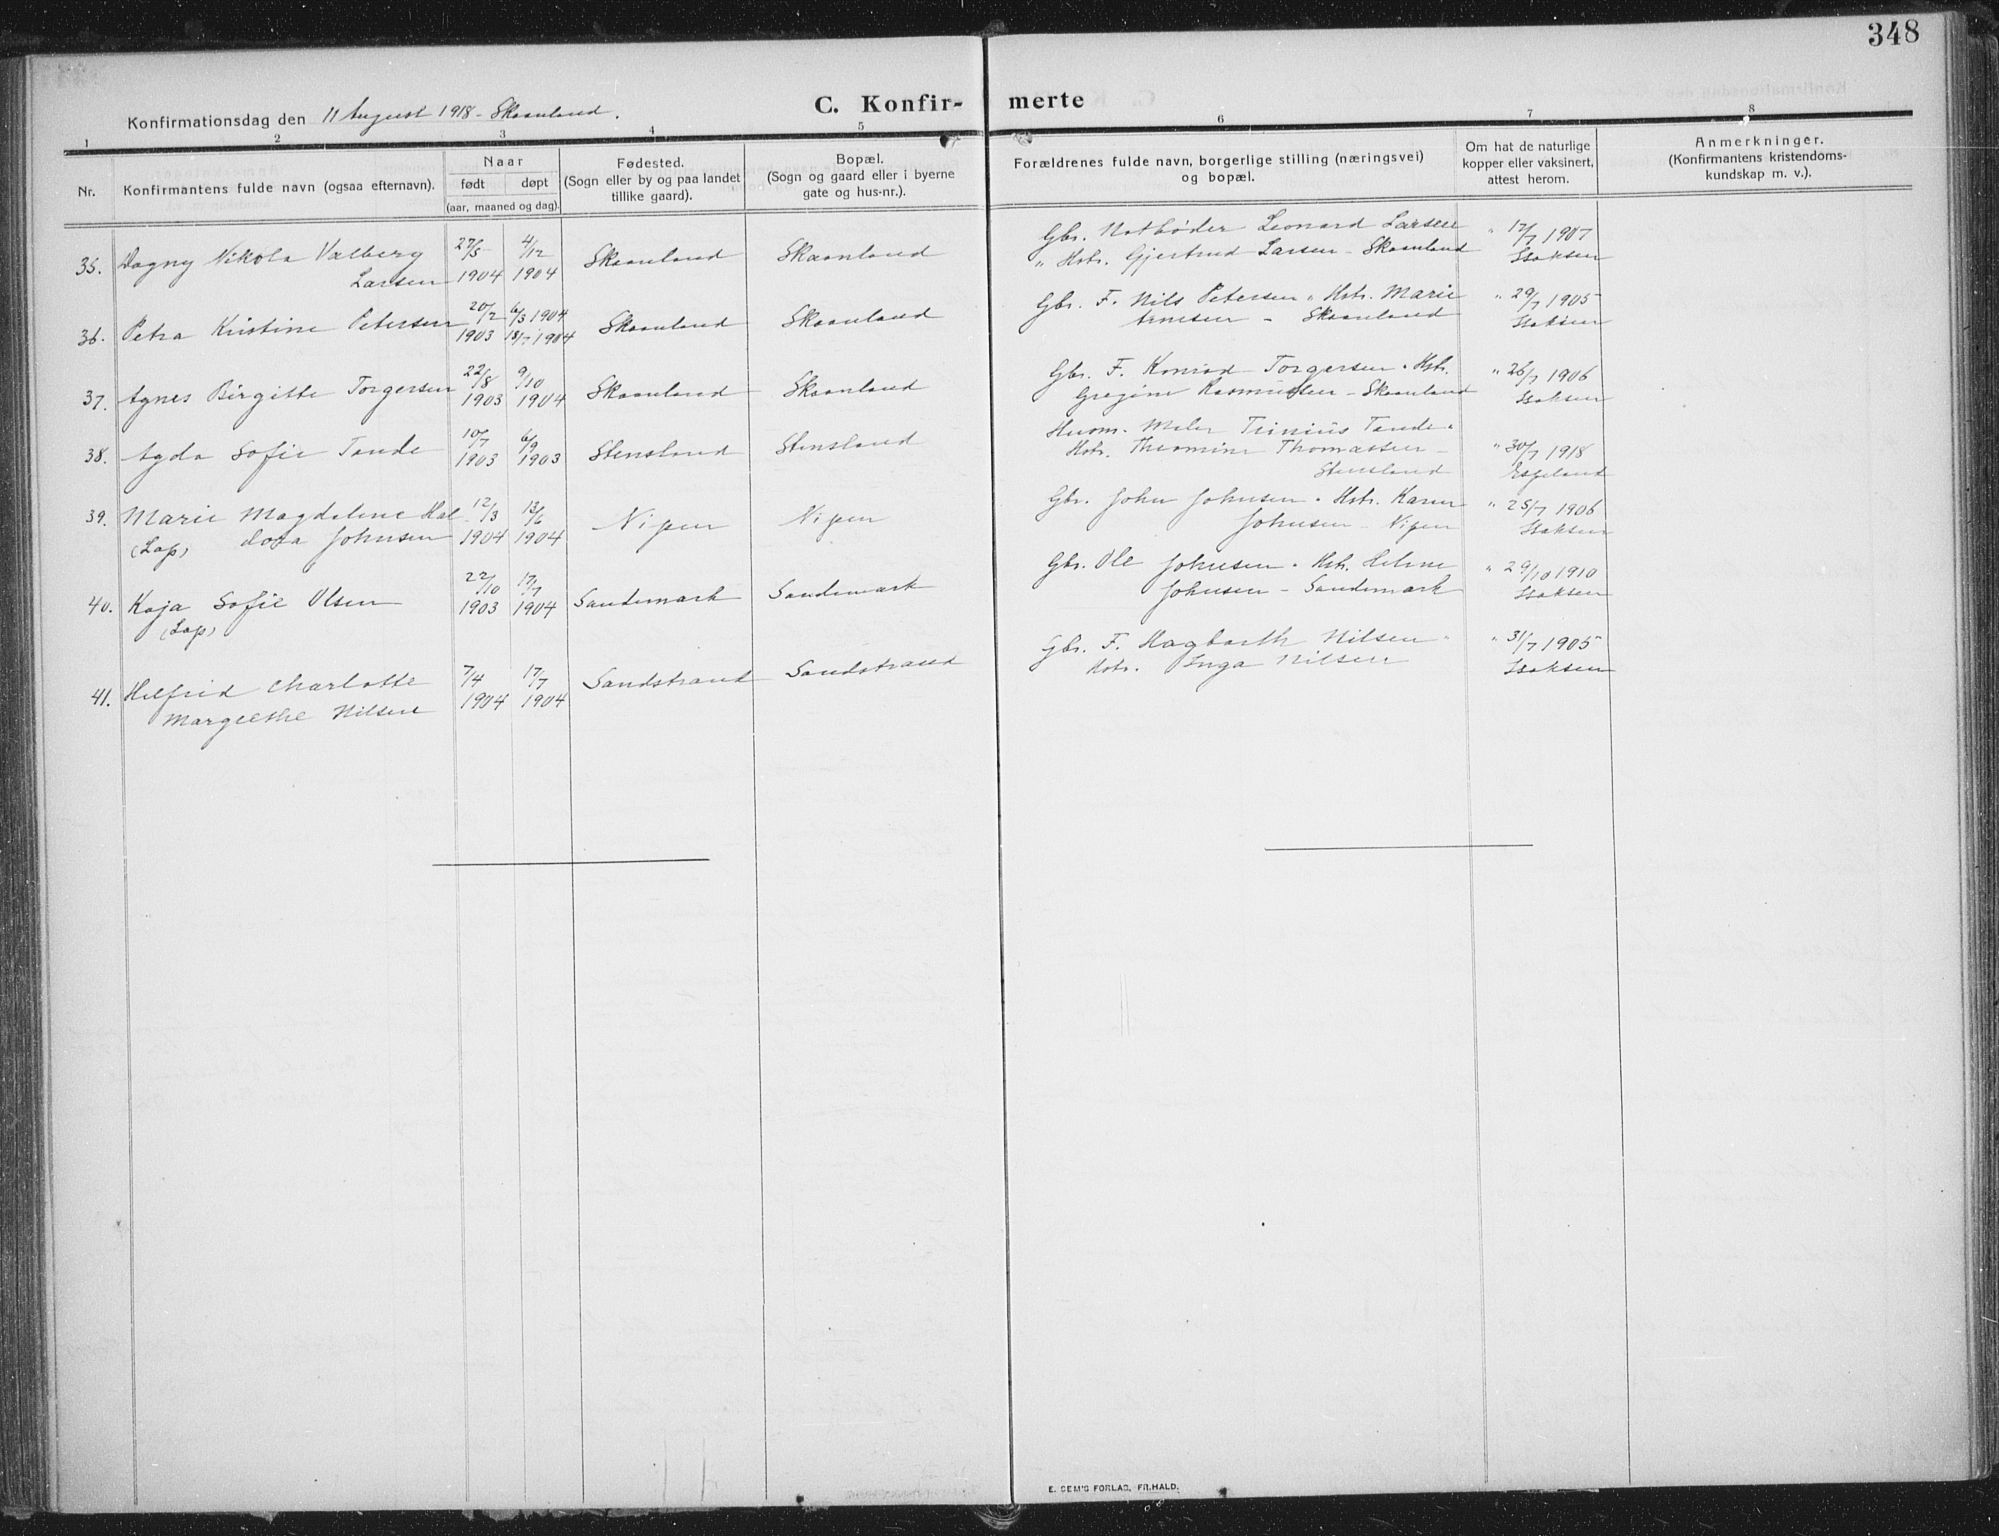 348
C. Konfir- merte
Konfirmationsdag den 11 August 1918 - Skaanland.
1 2 3 4 5 6 7 8
Nr.
Konfirmantens fulde navn (ogsaa efternavn).
Naar
født døpt
(aar, maaned og dag).
Fødested.
(Sogn eller by og paa landet
tillike gaard).
Bopæl.
(Sogn og gaard eller i byerne
gate og hus-nr.).
Forældrenes fulde navn, borgerlige stilling (næringsvei)
og bopæl.
Om hat de naturlige
kopper eller vaksinert,
attest herom.
Anmerkninger.
(Konfirmantens kristendoms-
kundskap m. v.).
35. Dagny Nikola Valberg 27/5 4/12 Skaanland Skaanland Gbr. Notbøder Leonard Larsen " 17/7 1907
Larsen 1904 1904 " Hstr. Gjertrud Larsen - Skaanland Isaksen
36. Petra Kristine Petersen 20/2 6/3 1904 Skaanland Skaanland Gbr. F. Nils Petersen " Hstr. Marie " 29/7 1905
1903 18/7 1904 Arnesen - Skaanland Isaksen
37. Agnes Birgitte Torgersen 22/8 9/10 Skaanland Skaanland Gbr. F. Konrad Torgersen " Hstr. " 26/7 1906
1903 1904 Rasmussen - Skaanland Isaksen
38. Agda Sofie Tande 10/7 6/9 Stensland Stensland Maler Trinius Tande "
1903 1903 Hstr. Thomassen - " 30/7 1918
Stensland
39. Marie Magdelene Hal 12/3 13/6 Nipen Nipen Gbr. John Johnsen " Hstr. Karen " 25/7 1906
(Lap) dora Johnsen 1904 1904 Johnsen Nipen Isaksen
40. Kaja Sofie Olsen 22/10 17/7 Sandemark Sandemark Gbr. Ole Johnsen " Hstr. Helene " 29/10 1910
(Lap) 1903 1904 Johnsen - Sandemark Isaksen
41. Helfrid Charlotte 7/4 17/7 Sandstrand Sandstrand Gbr. F. Hagbarth Nilsen " " 31/7 1905
Margrethe Nilsen 1904 1904 Hstr. Inga Nilsen Isaksen
E. SEM'S FORLAG, FR.HALD.